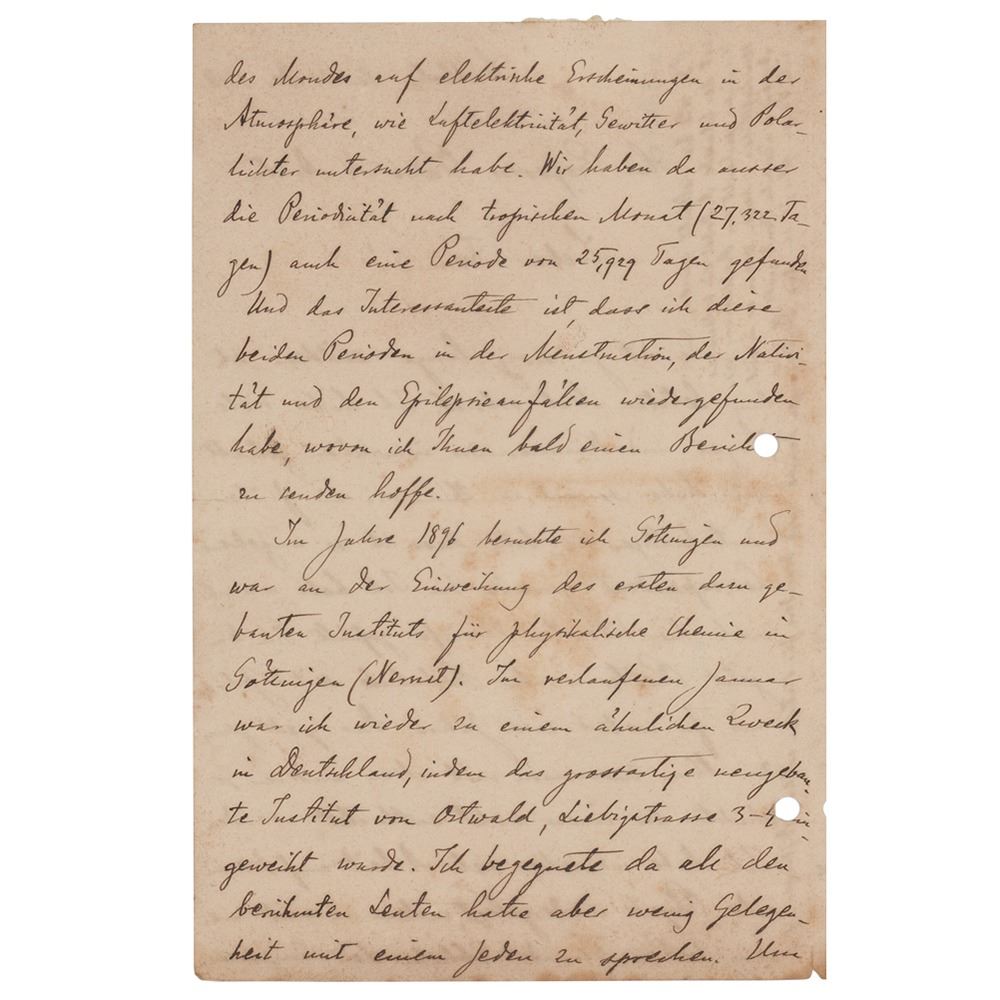 des Mondes auf elektrische Erscheinungen in der
Atmosphäre, wie Luftelektrizität, Gewitter und Polar-
lichter untersucht habe. Wir haben da ausser
die Periodizität nach tropischen Monat (27,322 Ta-
gen) auch eine Periode von 25,929 Tagen gefunden
Und das Interessanteste ist, dass ich diese
beiden Perioden in der Menstruation, der Nativi-
tät und den Epilepsieanfällen wiedergefunden
habe, wovon ich Ihnen bald einen Bericht
zu senden hoffe.
Im Jahre 1896 besuchte ich Göttingen und
war an der Einweihung des ersten dazu ge-
bauten Instituts für physikalische Chemie in
Göttingen (Nernst). Im verlaufenen Januar
war ich wieder zu einem ähnlichen Zweck
in Deutschland, indem das grossartige neugebau-
te Institut von Ostwald, Liebigstrasse 3-4 ein-
geweiht wurde. Ich begegnete da all den
berühmten Leuten hatte aber wenig Gelegen-
heit mit einem Jeden zu sprechen. Um